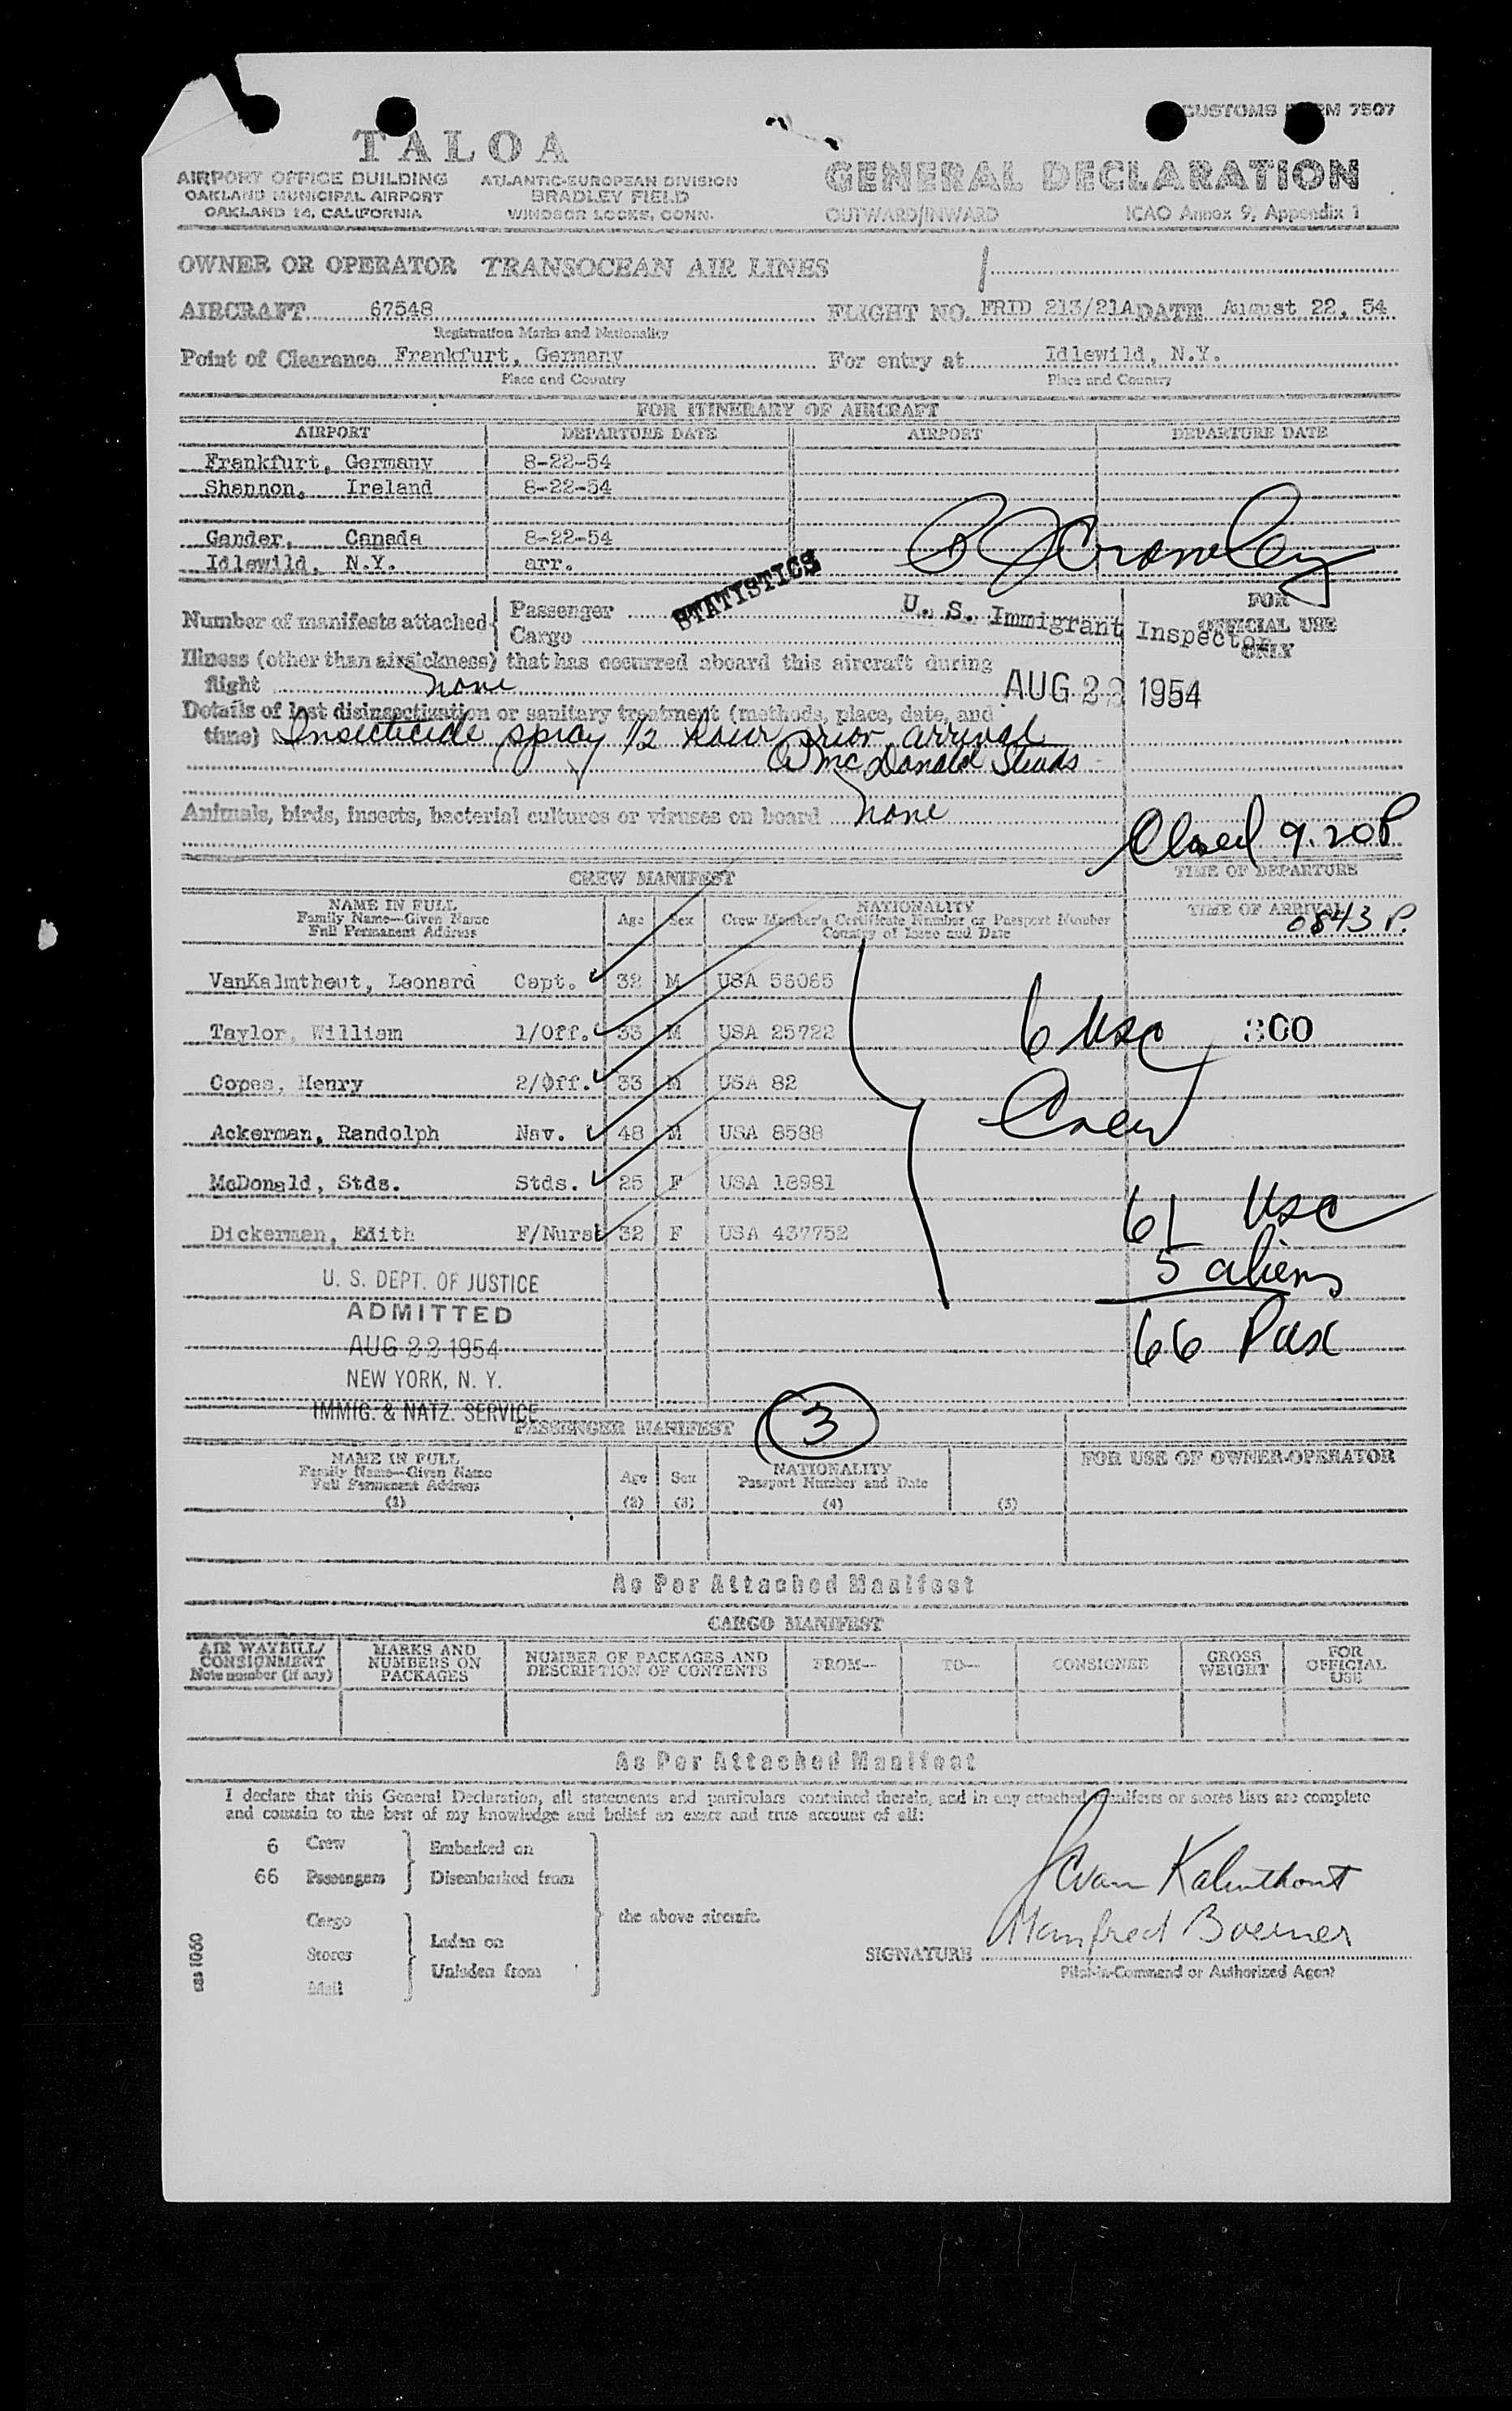 CUSTOMS FORM 7507
TALOA
AIRPORT OFFICE BUILDING
OAKLAND MUNICIPAL AIRPORT
OAKLAND 14, CALIFORNIA
ATLANTIC-EUROPEAN DIVISION
BRADLEY FIELD
WINDSOR LOCKS, CONN.
GENERAL DECLARATION
OUTWARD/INWARD ICAO Annex 9, Appendix 1
OWNER OR OPERATOR TRANSOCEAN AIR LINES
AIRCRAFT 67548 FLIGHT NO. FRID 213/21A DATE August 22, 54
Registration Marks and Nationality
Point of Clearance Frankfurt, Germany For entry at Idlewild, N.Y.
Place and Country Place and Country
FOR ITINERARY OF AIRCRAFT
AIRPORT DEPARTURE DATE AIRPORT DEPARTURE DATE
Frankfurt, Germany 8-22-54
Shannon, Ireland 8-22-54
Gander, Canada 8-22-54
Idlewild, N.Y. arr.
Crowley
STATISTICS
U. S. Immigrant Inspector
Number of manifests attached Passenger
Cargo
FOR OFFICIAL USE ONLY
Illness (other than airsickness) that has occurred aboard this aircraft during
flight none
AUG 22 1954
Details of last disinsectization or sanitary treatment (methods, place, date, and
time) Insecticide spray 1/2 hour prior arrival
McDonald Stwds
Animals, birds, insects, bacterial cultures or viruses on board none
Closed 9.20 P.
TIME OF DEPARTURE
CREW MANIFEST
NAME IN FULL
Family Name—Given Name
Full Permanent Address
Age Sex
NATIONALITY
Crew Member's Certificate Number or Passport Number
Country of Issue and Date
TIME OF ARRIVAL
0843 P.
VanKalmthout, Leonard Capt. 32 M USA 56065
Taylor, William 1/Off. 33 M USA 25722
Copes, Henry 2/Off. 33 M USA 82
Ackerman, Randolph Nav. 48 M USA 8588
McDonald, Stds. Stds. 25 F USA 18981
Dickerman, Edith F/Nurse 32 F USA 437752
6 USC 300
Crew
61 USC
5 aliens
66 Pax
U. S. DEPT. OF JUSTICE
ADMITTED
AUG 22 1954
NEW YORK, N. Y.
IMMIG. & NATZ. SERVICE
3
PASSENGER MANIFEST
NAME IN FULL
Family Name—Given Name
Full Permanent Address
(1)
Age
(2)
Sex
(3)
NATIONALITY
Passport Number and Date
(4)
(5)
FOR USE OF OWNER-OPERATOR
As Per Attached Manifest
CARGO MANIFEST
AIR WAYBILL/
CONSIGNMENT
Note number (if any)
MARKS AND
NUMBERS ON
PACKAGES
NUMBER OF PACKAGES AND
DESCRIPTION OF CONTENTS
FROM—
TO—
CONSIGNEE
GROSS
WEIGHT
FOR
OFFICIAL
USE
As Per Attached Manifest
I declare that this General Declaration, all statements and particulars contained therein, and in any attached manifests or stores lists are complete
and contain to the best of my knowledge and belief an exact and true account of all:
6 Crew
66 Passengers
Embarked on
Disembarked from
Cargo
Stores
Mail
Laden on
Unladen from
the above aircraft.
van Kalmthout
Manfred Boerner
SIGNATURE
Pilot-in-Command or Authorized Agent